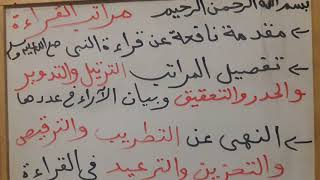 بسم الله الرحمن الرحيم مراتب القراءة
← مقدمة نافعة عن قراءة النبى
← تفصيل المراتب الترتيل والتدوير
والحدر والتحقيق وبيان الآراء فى عددها
← النهى عن التطريب والترقيص
والتحزين والترعيد فى القراءة